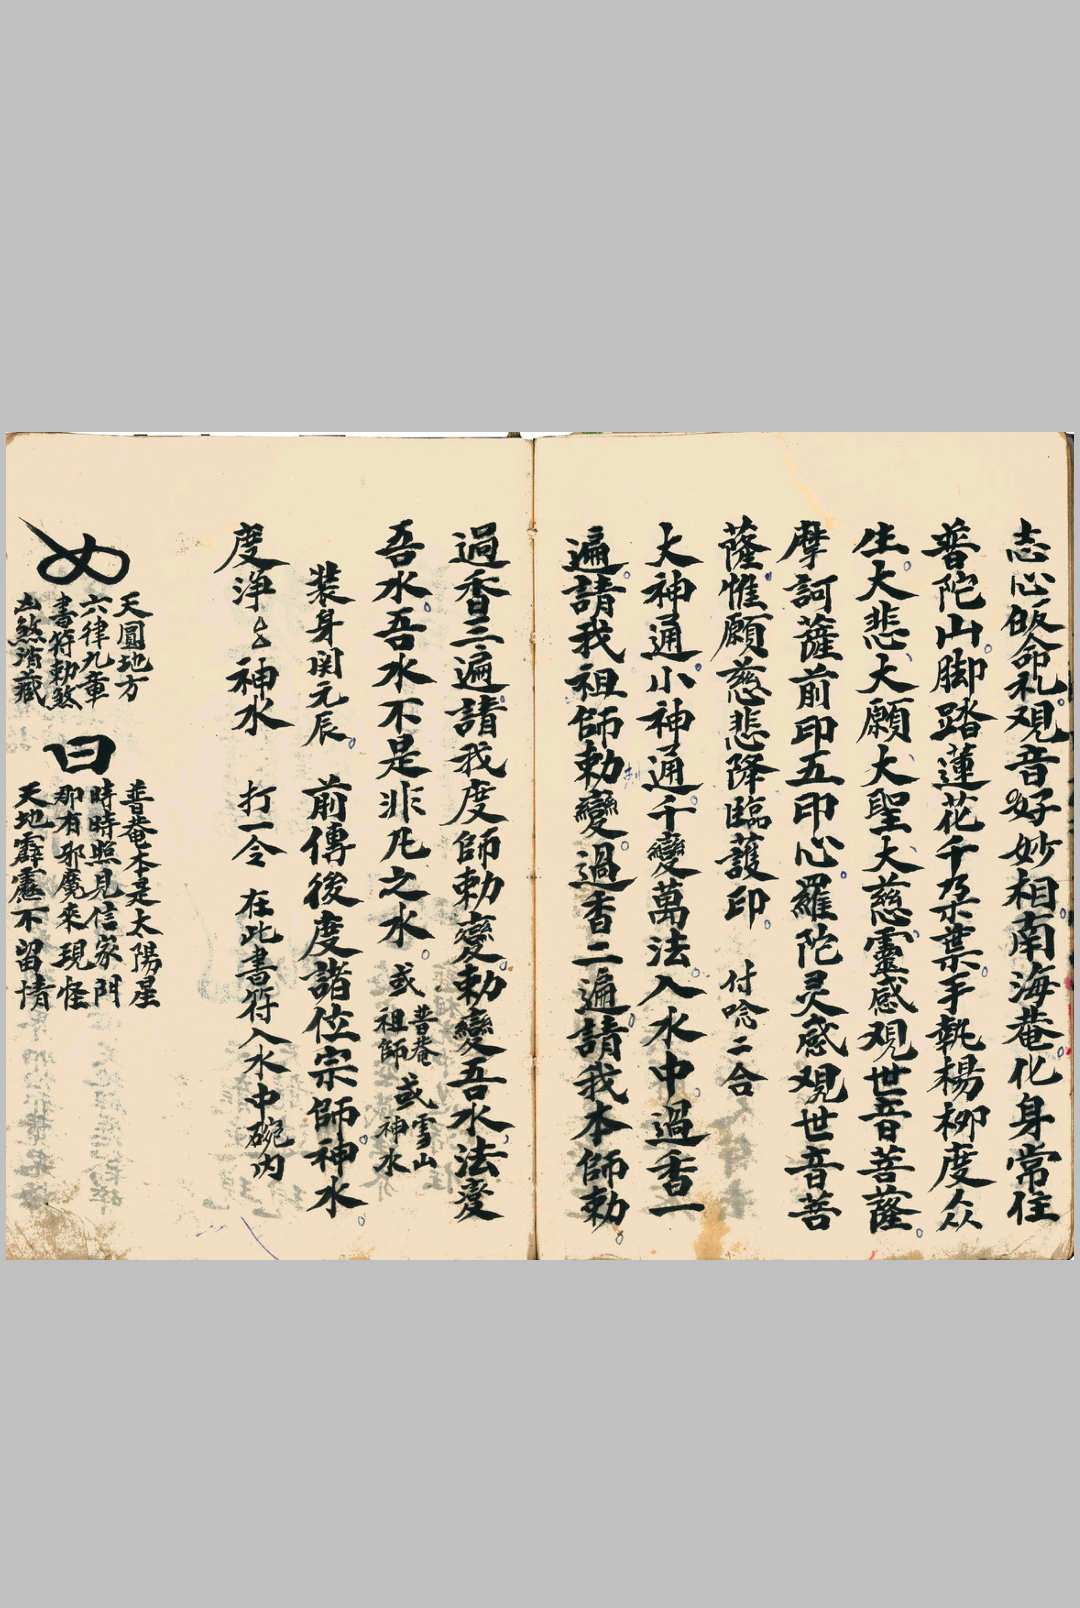 志心皈命礼观音好妙相南海菴化身常住
普陀山脚踏蓮花千朶葉手執楊柳度众
生大悲大願大聖大慈靈感观世音菩薩
摩訶薩前印五印心羅陀灵感观世音菩
薩惟願慈悲降臨護印 付唸二合
大神通小神通千變萬法入水中過香一
遍請我祖師勅變過香二遍請我本師勅
過香三遍請我度師勅變勅變吾水法变
吾水吾水不是非凡之水 或普菴祖師或雪山神水
裝身関元辰 前傳後度諸位宗師神水
度淨〻神水 打一令 在此書符入水中碗内
天圓地方
六律九章
書符勅煞
凶煞消藏
日
普菴本是太陽星
時時照見信家門
那有邪魔來現怪
天地霹靂不留情